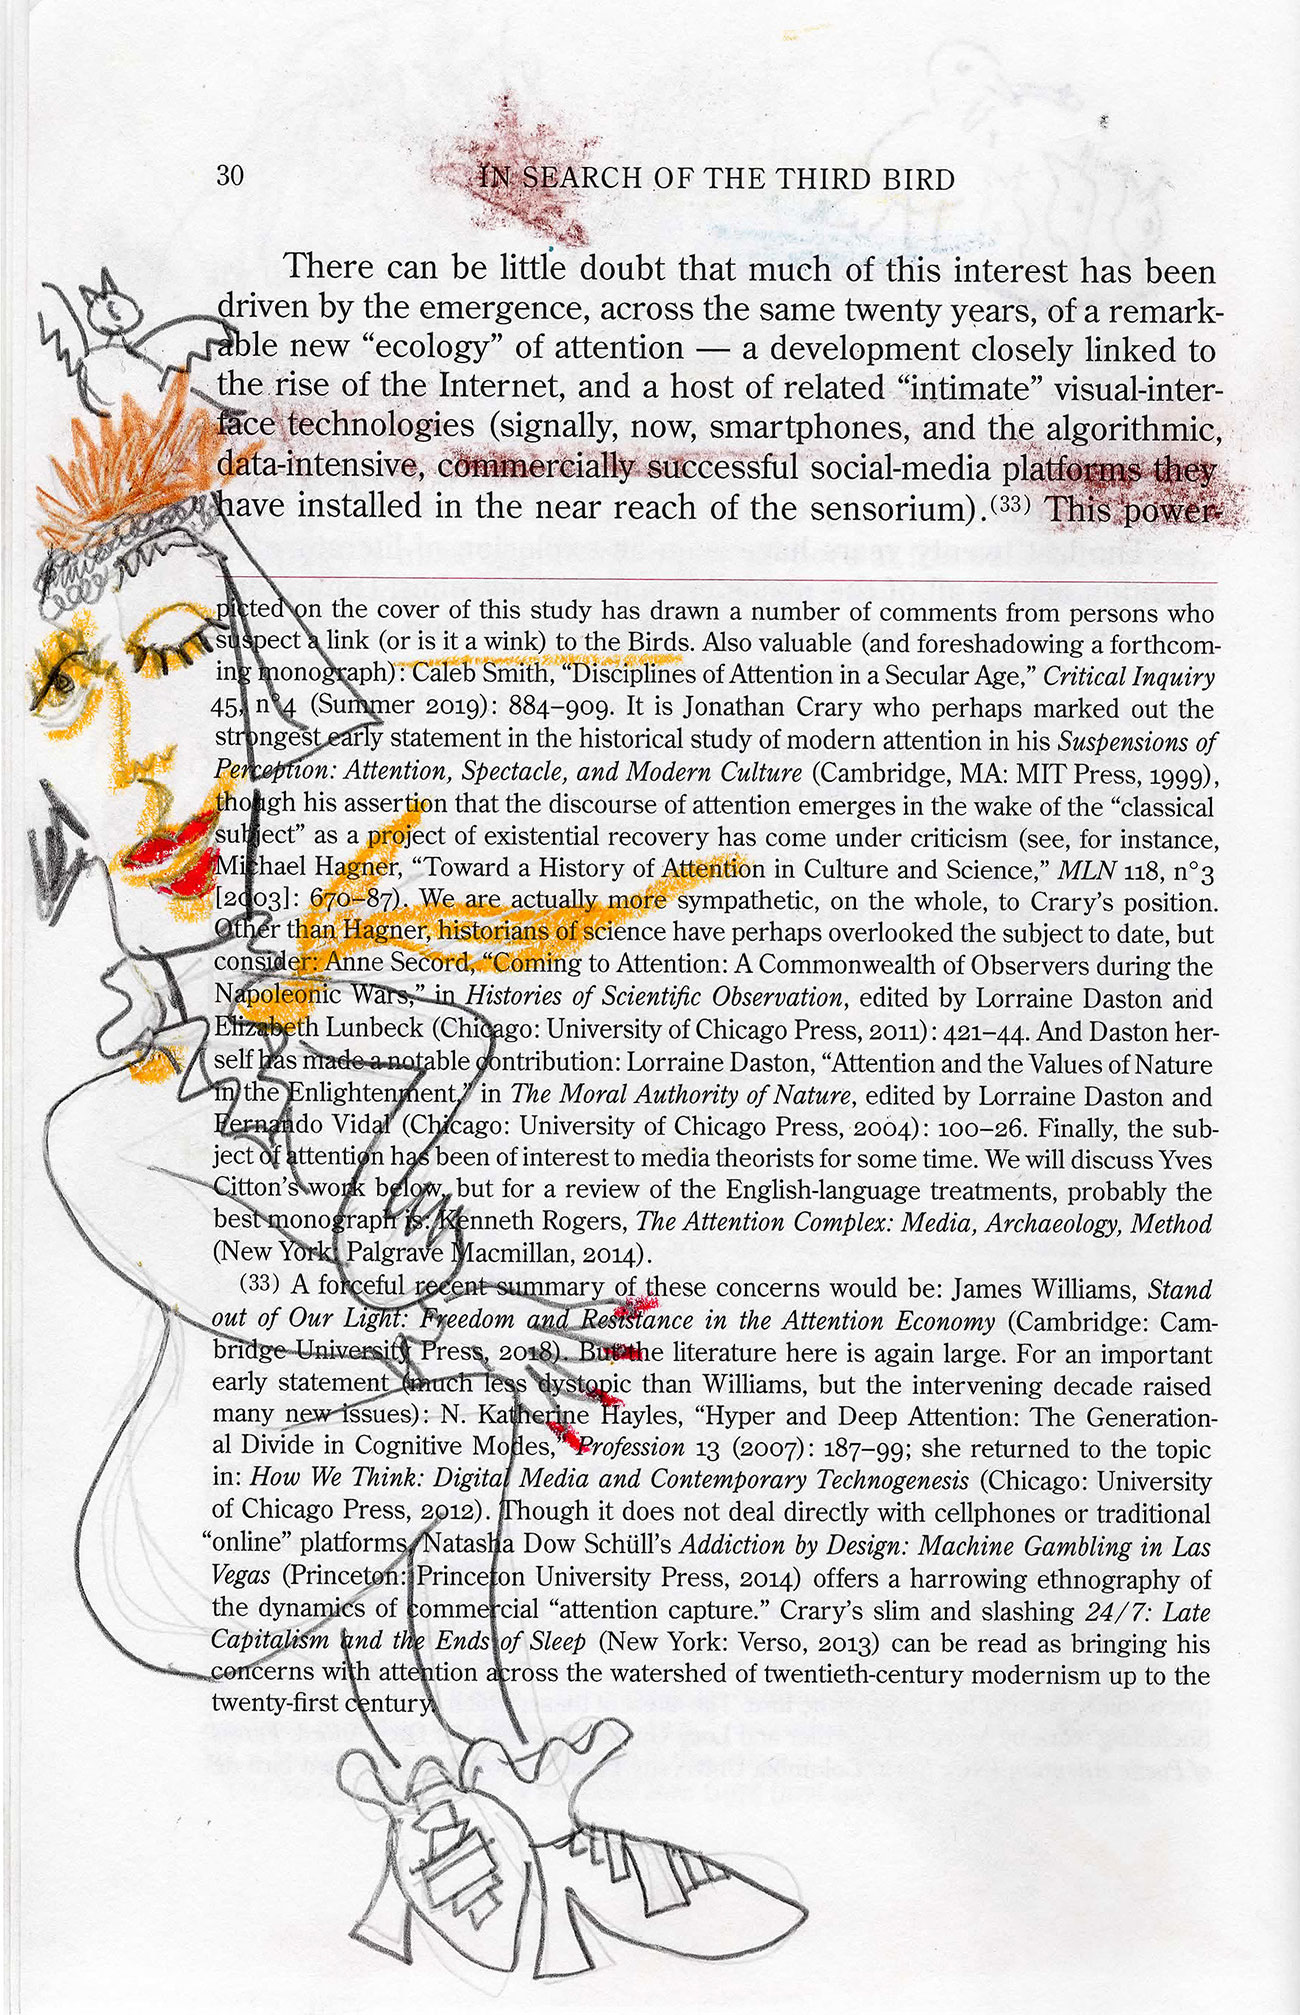 30
IN SEARCH OF THE THIRD BIRD
There can be little doubt that much of this interest has been
driven by the emergence, across the same twenty years, of a remark-
able new “ecology” of attention — a development closely linked to
the rise of the Internet, and a host of related “intimate” visual-inter-
face technologies (signally, now, smartphones, and the algorithmic,
data-intensive, commercially successful social-media platforms they
have installed in the near reach of the sensorium).(33) This power-
picted on the cover of this study has drawn a number of comments from persons who
suspect a link (or is it a wink) to the Birds. Also valuable (and foreshadowing a forthcom-
ing monograph): Caleb Smith, “Disciplines of Attention in a Secular Age,” Critical Inquiry
45, n°4 (Summer 2019): 884–909. It is Jonathan Crary who perhaps marked out the
strongest early statement in the historical study of modern attention in his Suspensions of
Perception: Attention, Spectacle, and Modern Culture (Cambridge, MA: MIT Press, 1999),
though his assertion that the discourse of attention emerges in the wake of the “classical
subject” as a project of existential recovery has come under criticism (see, for instance,
Michael Hagner, “Toward a History of Attention in Culture and Science,” MLN 118, n°3
[2003]: 670–87). We are actually more sympathetic, on the whole, to Crary’s position.
Other than Hagner, historians of science have perhaps overlooked the subject to date, but
consider: Anne Secord, “Coming to Attention: A Commonwealth of Observers during the
Napoleonic Wars,” in Histories of Scientific Observation, edited by Lorraine Daston and
Elizabeth Lunbeck (Chicago: University of Chicago Press, 2011): 421–44. And Daston her-
self has made a notable contribution: Lorraine Daston, “Attention and the Values of Nature
in the Enlightenment,” in The Moral Authority of Nature, edited by Lorraine Daston and
Fernando Vidal (Chicago: University of Chicago Press, 2004): 100–26. Finally, the sub-
ject of attention has been of interest to media theorists for some time. We will discuss Yves
Citton’s work below, but for a review of the English-language treatments, probably the
best monograph is: Kenneth Rogers, The Attention Complex: Media, Archaeology, Method
(New York: Palgrave Macmillan, 2014).
(33) A forceful recent summary of these concerns would be: James Williams, Stand
out of Our Light: Freedom and Resistance in the Attention Economy (Cambridge: Cam-
bridge University Press, 2018). But the literature here is again large. For an important
early statement (much less dystopic than Williams, but the intervening decade raised
many new issues): N. Katherine Hayles, “Hyper and Deep Attention: The Generation-
al Divide in Cognitive Modes,” Profession 13 (2007): 187–99; she returned to the topic
in: How We Think: Digital Media and Contemporary Technogenesis (Chicago: University
of Chicago Press, 2012). Though it does not deal directly with cellphones or traditional
“online” platforms, Natasha Dow Schüll’s Addiction by Design: Machine Gambling in Las
Vegas (Princeton: Princeton University Press, 2014) offers a harrowing ethnography of
the dynamics of commercial “attention capture.” Crary’s slim and slashing 24/7: Late
Capitalism and the Ends of Sleep (New York: Verso, 2013) can be read as bringing his
concerns with attention across the watershed of twentieth-century modernism up to the
twenty-first century.